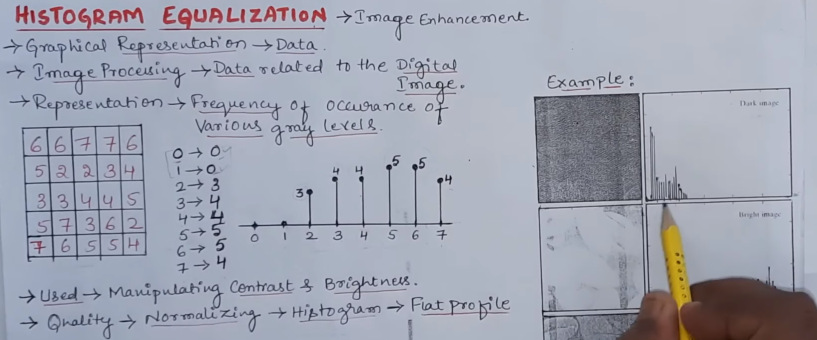 HISTOGRAM EQUALIZATION → Image Enhancement.
→ Graphical Representation → Data.
→ Image Processing → Data related to the Digital Image.
→ Representation → Frequency of occurance of Various gray levels.
6 6 7 7 6
5 2 2 3 4
3 3 4 4 5
5 7 3 6 2
7 6 5 5 4
0 → 0
1 → 0
2 → 3
3 → 4
4 → 4
5 → 5
6 → 5
7 → 4
3 4 4 5 5 4
0 1 2 3 4 5 6 7
→ Used → Manipulating Contrast & Brightness.
→ Quality → Normalizing → Histogram → Flat profile
Example:
Dark image
Bright image